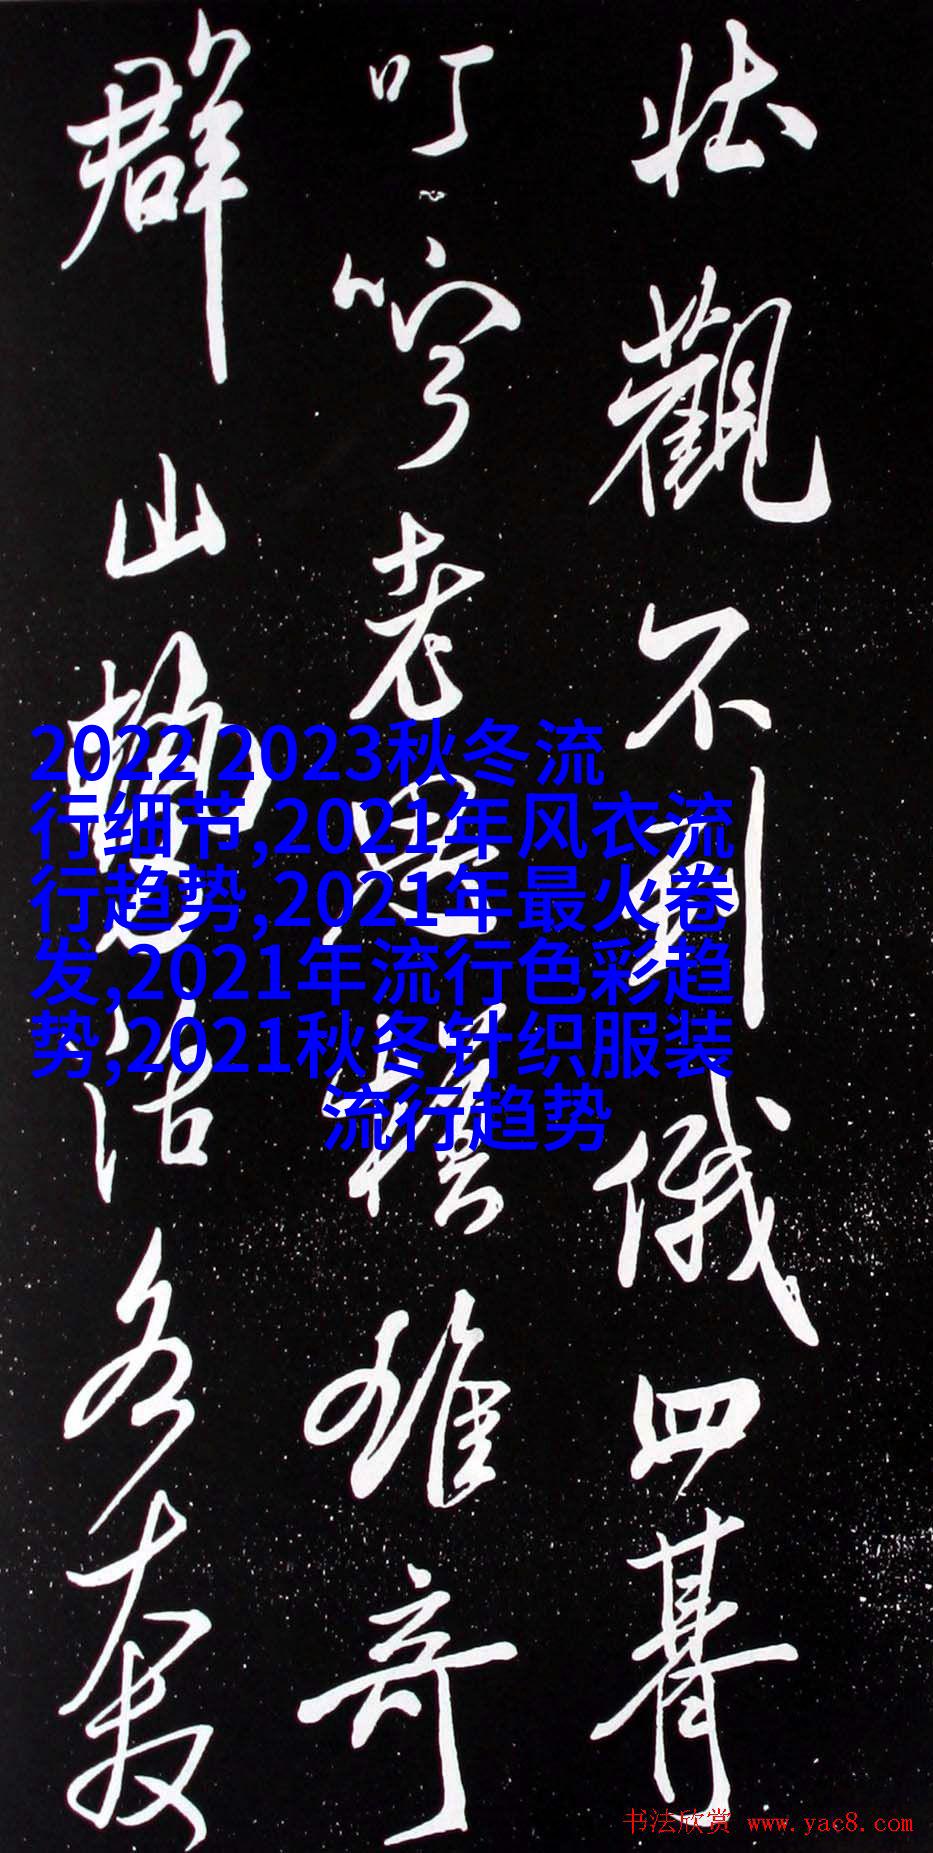 壯觀不到俄四朞
叮嚀老雄奇
群山
2022 2023秋冬流
行细节,2021年风衣流
行趋势,2021年最火卷
发,2021年流行色彩趋
势,2021秋冬针织服装
流行趋势
书法欣赏 www.yac8.com